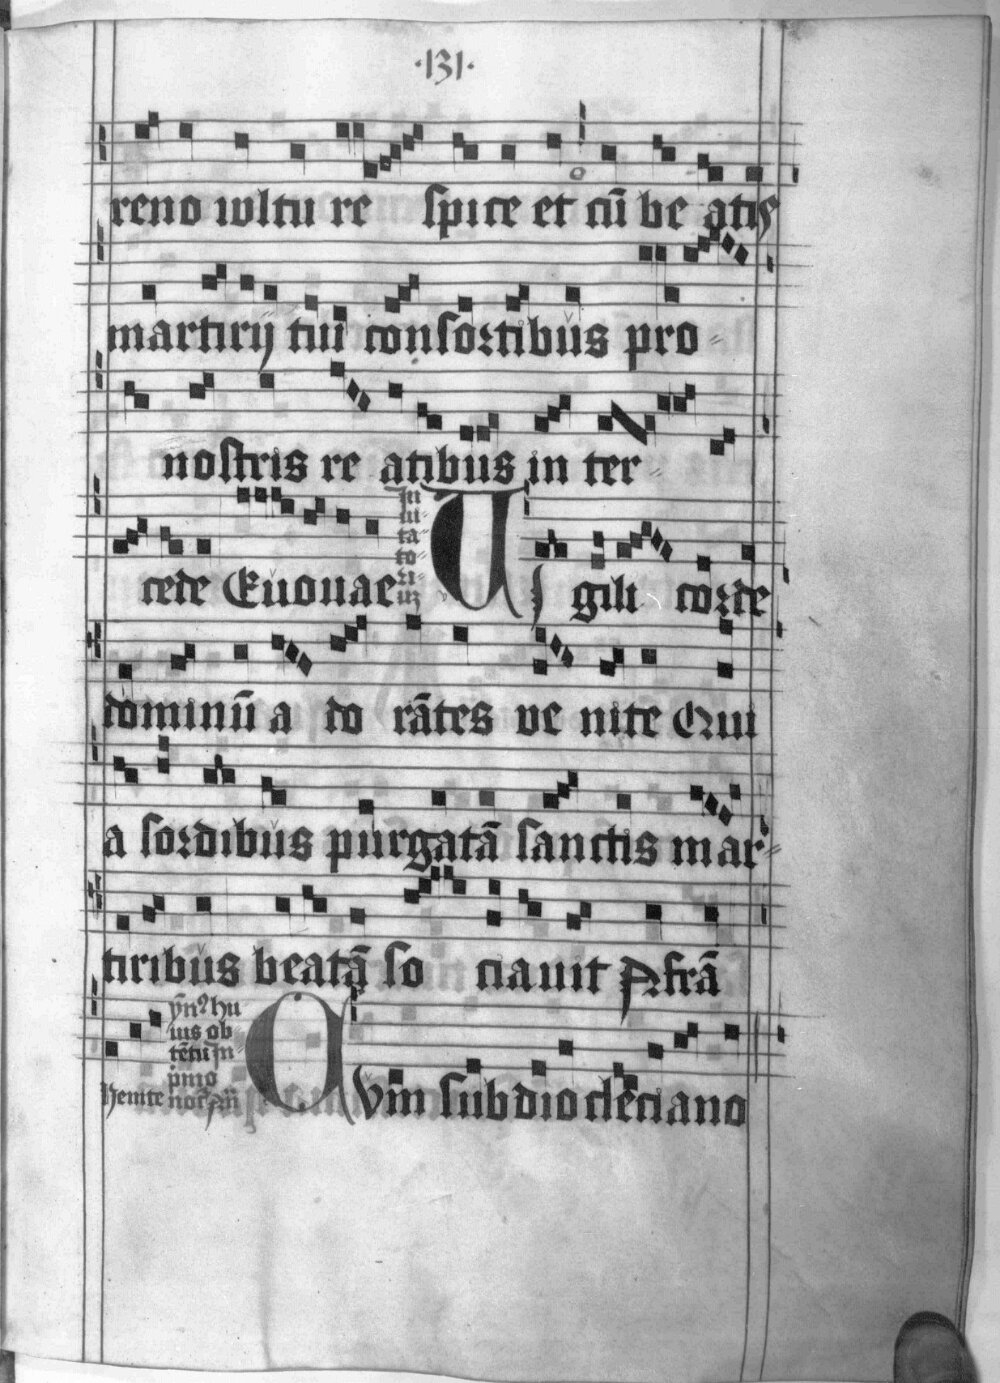 ·131·
reno wltu re spice et cũ be atis
martirij tui consortibus pro=
nostris re atibus in ter=
cede Euouae In ui= ta= to= ri= uʒ VI gili corde
dominũ a do rãtes ve nite Qui
a sordibus purgatã sanctis mar=
tiribus beatã so ciauit Afrã
ỹnꝰ hu
ius ob
tẽtu In
pmo
Venite noct̃ Añ QVm sub dio clẽciano